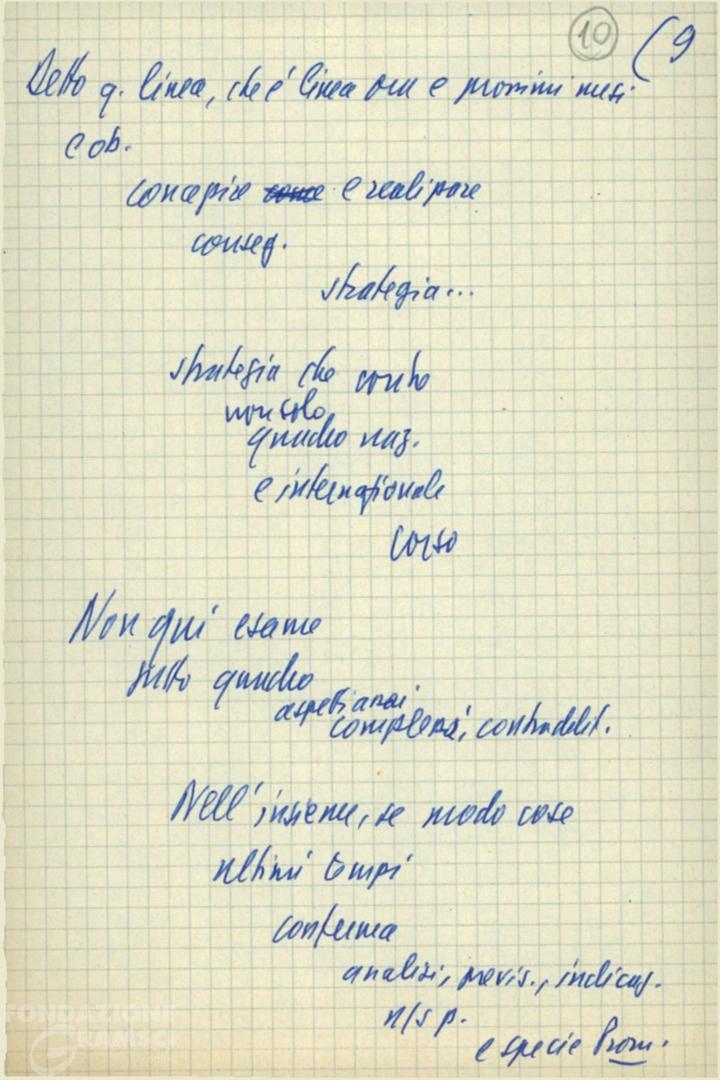 10 (9
Detto q. linea, che è linea ora e prossimi mesi
e ob.
concepire come e realizzare
conseg.
strategia...
strategia che conto
non solo
quadro naz.
e internazionale
corso
Non qui esame
tutto quadro
aspetti anzi
complessi, contraddit.
Nell'insieme, se modo cose
ultimi tempi
conferma
analisi, previs., indicaz.
n/s p.
e specie Prom.
FONDAZIONE
GRAMSCI